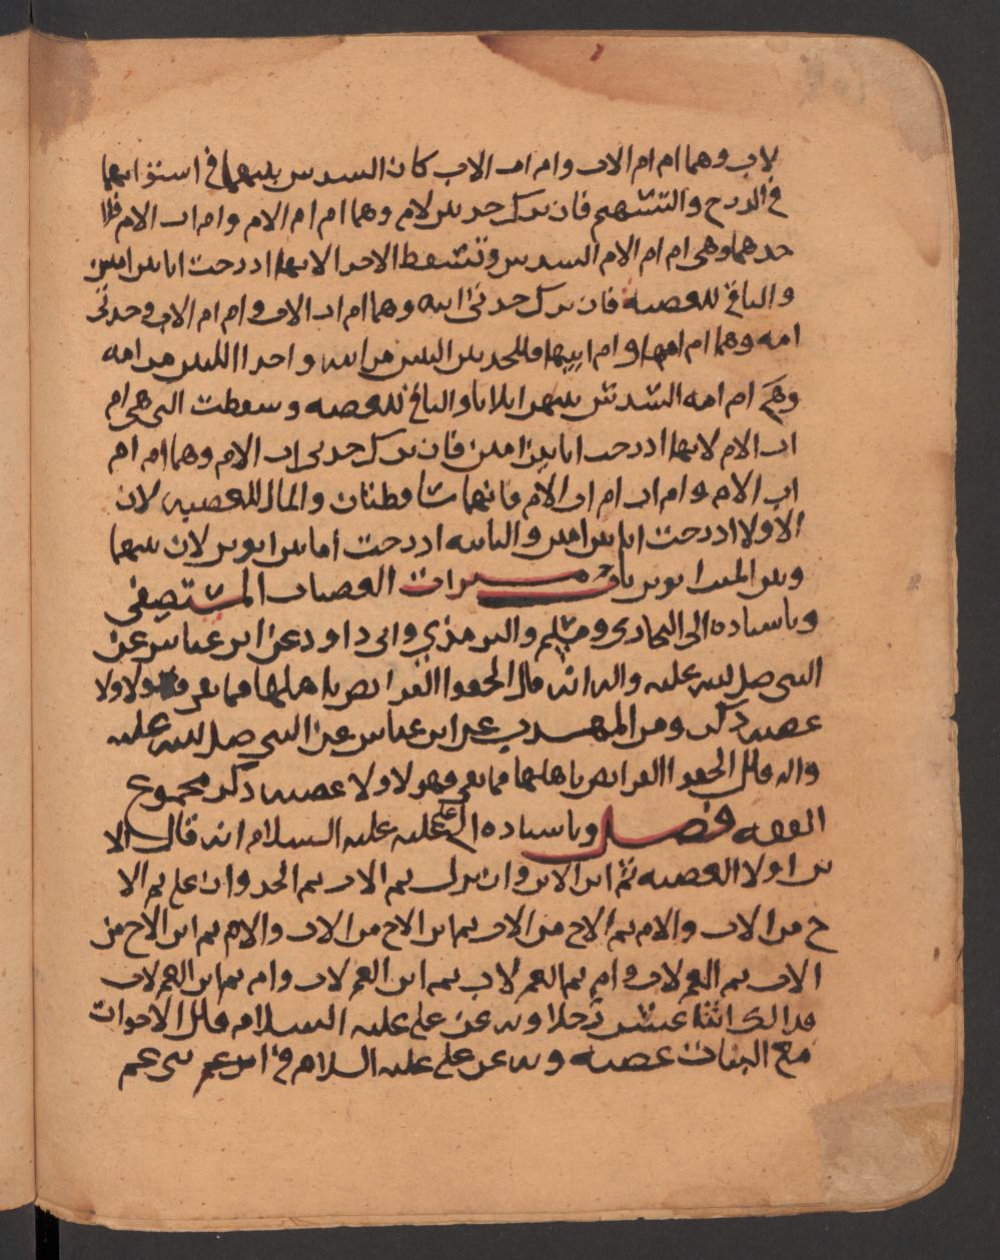 لاب وهما ام ام الاب وام اب الاب كان السدس بينهما في استوائهما
في الدرج والتسهم فان ترك جدتين لام وهما ام ام الام وام اب الام فلا
حدهما وهي ام ام الام السدس وتسقط الاخرا لانها ادرجت ابا بين امين
والباقي للعصبة فان ترك جدتي ابيه وهما ام اب الاب وام ام الاب وجدتي
امه وهما ام امها وام ابيها فللجدتين اللتين من ابيه واحدا اللتين من امه
وهي ام امه السدس بينهن اثلاثا والباقي للعصبه وسقطت التي هي ام
اب الام لانها ادرجت ابا بين امين فان ترك جدتي اب الام وهما ام ام
اب الام وام اب ام اب الام فانهما ساقطتان والمال للعصبه لان
الاولا ادرجت ابا بين امين والثانيه ادرجت اما بين ابوين لان بينهما
وبين الميت ابوين باب ميراث العصبات المستصفى
وباسناده الى البخاري ومسلم والترمذي وابي داود عن ابن عباس عن
النبي صلى الله عليه واله انه قال الحقوا الفرائض باهلها فما بقي فهو لاولا
عصبه ذكر ومن المهذب عن ابن عباس عن النبي صلى الله عليه
واله قال الحقوا الفرائض باهلها فما بقي فهو لاولا عصبه ذكر مجموع
الفقه فصل وباسناده الى علي عليه السلام انه قال الا
بن اولا العصبه ثم ابن الابن وان نزل ثم الاب ثم الجد وان علي ثم الا
خ من الاب والام ثم الاخ من الاب ثم ابن الاخ من الاب والام ثم ابن الاخ من
الاب ثم العم لاب وام ثم العم لاب ثم ابن العم لاب وام ثم ابن العم لاب
فذالك اثنا عشر رجلا وبه عن علي عليه السلام قال الاخوات
مع البنات عصبه وبه عن علي عليه السلام في ابن عم بني عم